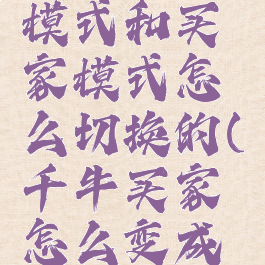 模式和买
家模式怎
么切换的(
千牛买家
怎么变成